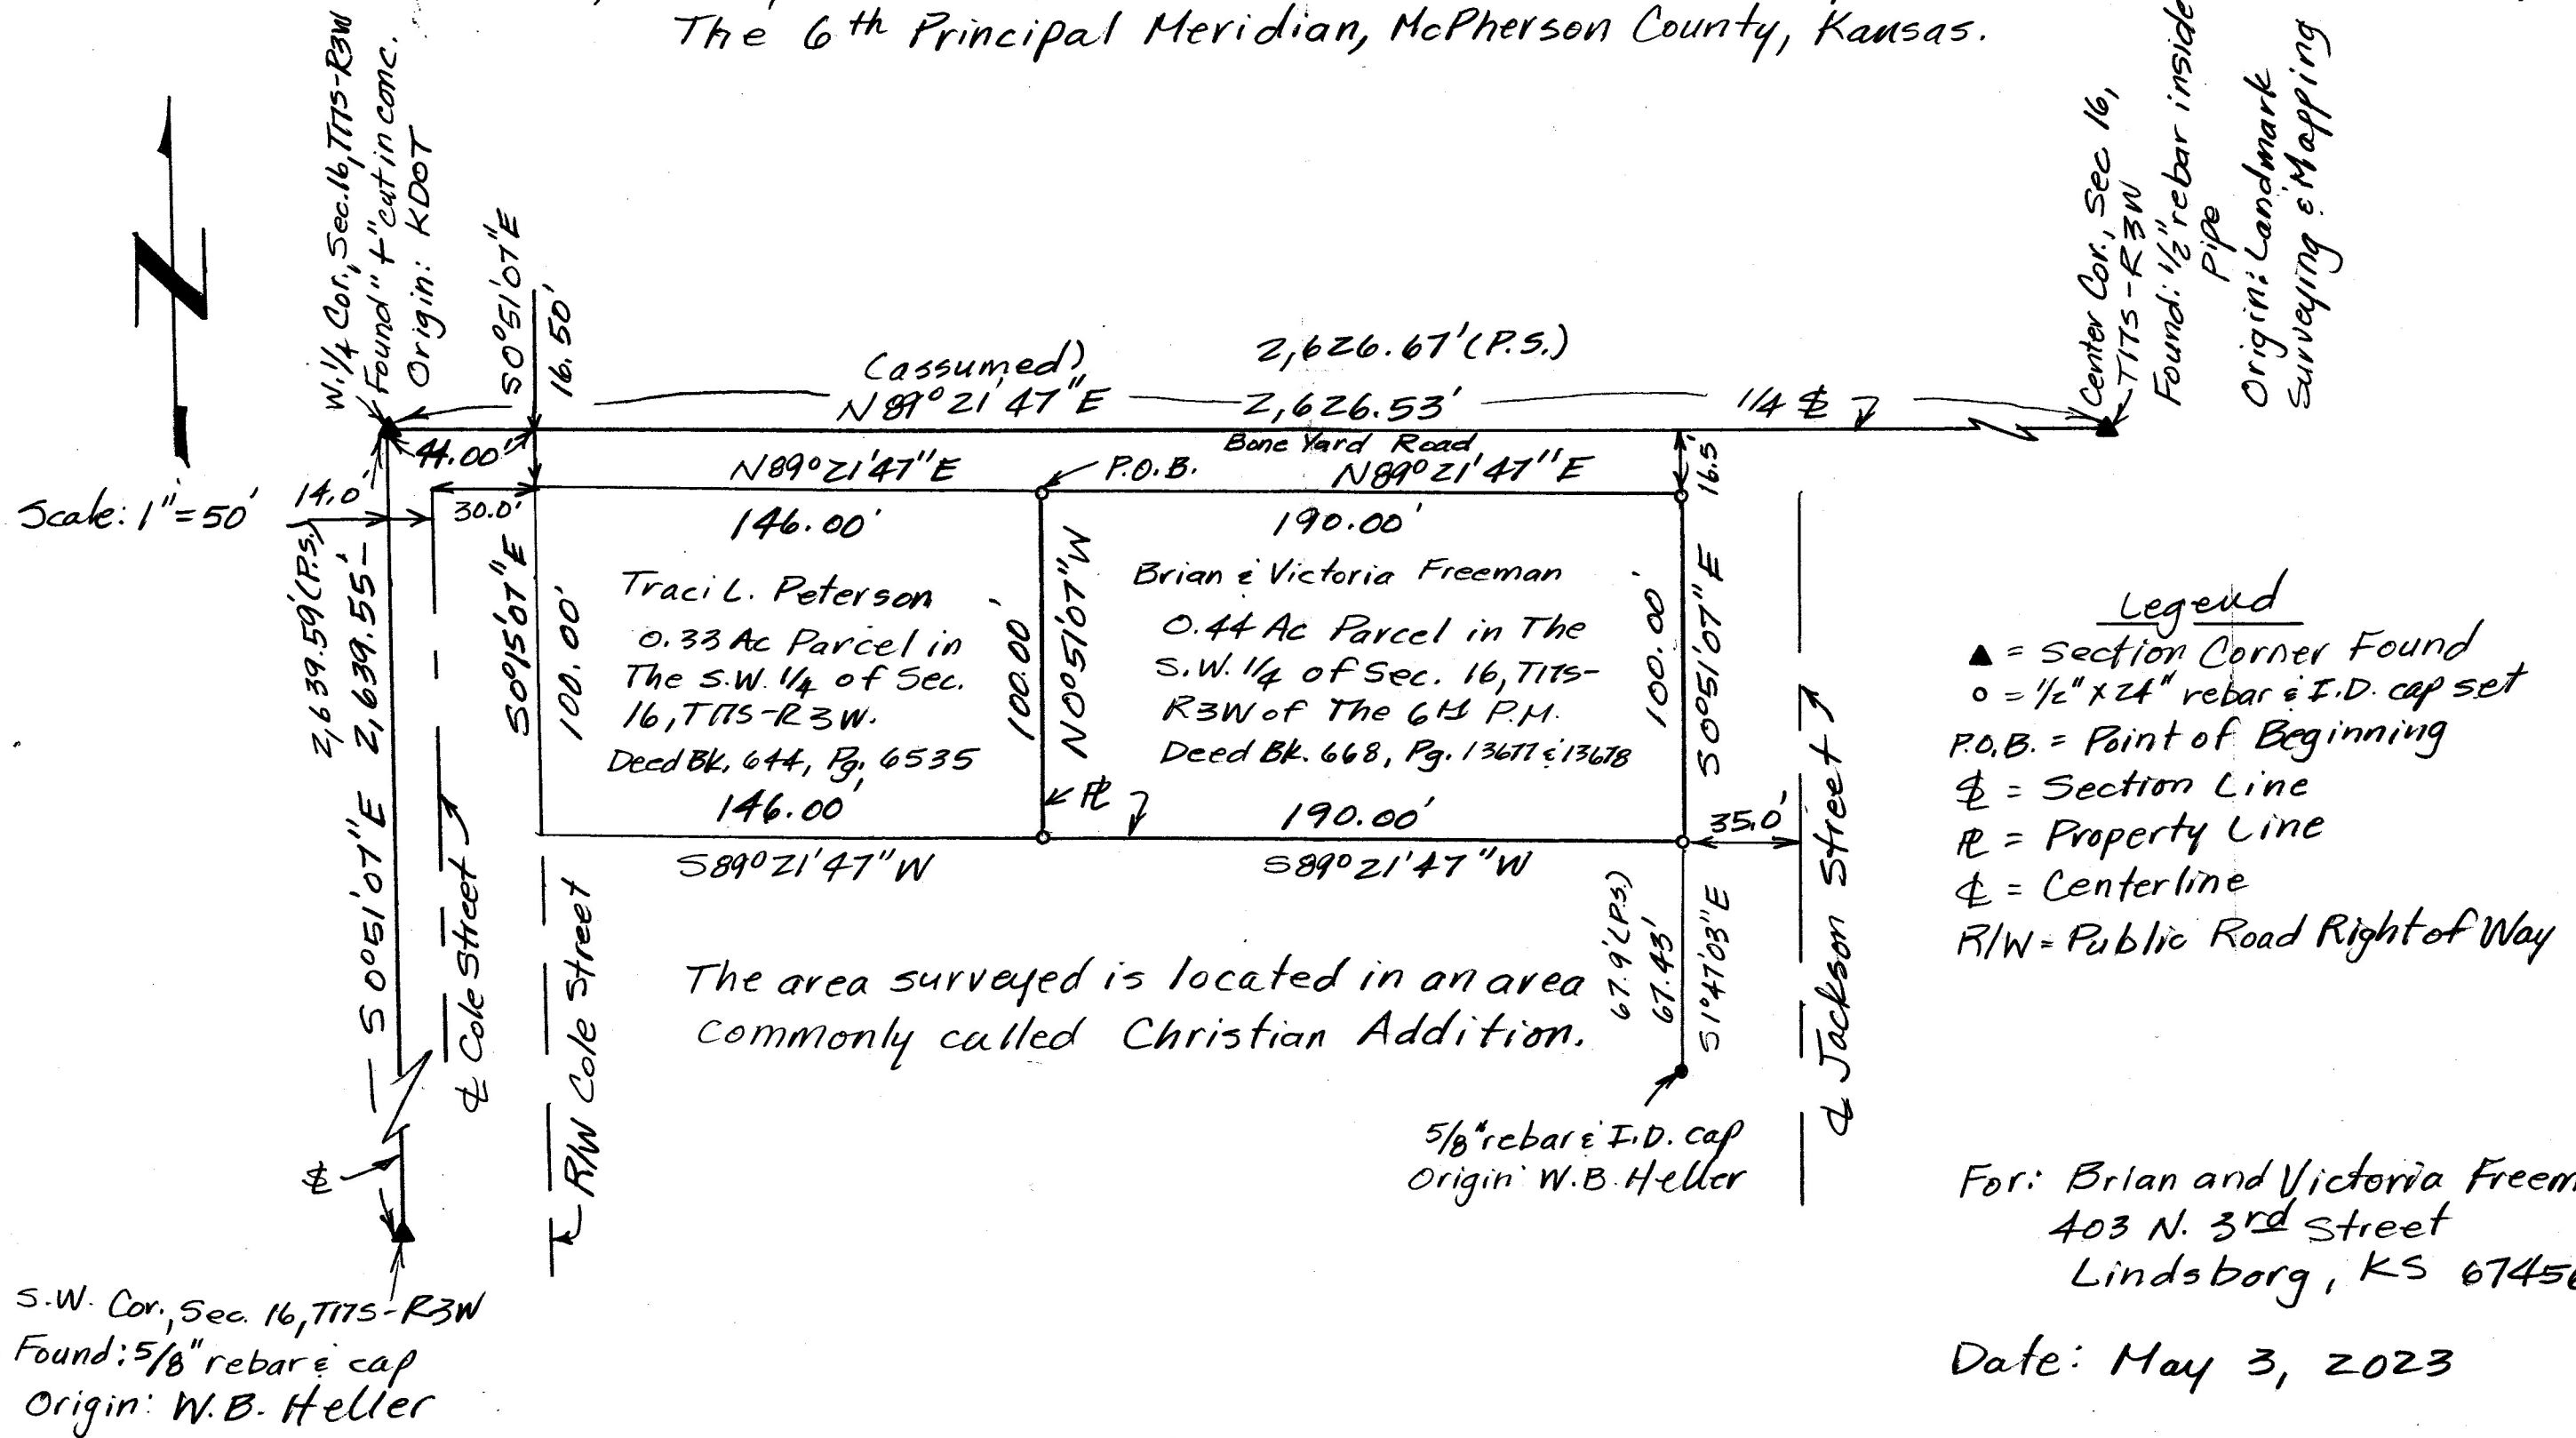 The 6th Principal Meridian, McPherson County, Kansas.
W. 1/4 Cor., Sec. 16, T17S-R3W
Found "+" cut in conc.
Origin: KDOT
S0°51'07"E
16.50'
(assumed)
N89°21'47"E
2,626.67' (P.S.)
2,626.53'
1/4
Center Cor., Sec 16,
T17S-R3W
Found: 1/2" rebar inside
Pipe
Origin: Landmark
Surveying & Mapping
Scale: 1"=50'
44.00'
14.0'
30.0'
Bone Yard Road
N89°21'47"E
P.O.B.
N89°21'47"E
16.5'
146.00'
190.00'
2,639.59' (P.S.)
2,639.55'
S0°51'07"E
S0°15'07"E
100.00'
Traci L. Peterson
0.33 Ac Parcel in
The S.W. 1/4 of Sec.
16, T17S-R3W.
Deed Bk. 644, Pg. 6535
146.00'
S89°21'47"W
100.00'
N0°51'07"W
Brian & Victoria Freeman
0.44 Ac Parcel in The
S.W. 1/4 of Sec. 16, T17S-
R3W of The 6th P.M.
Deed Bk. 668, Pg. 13677 & 13678
℄
190.00'
S89°21'47"W
100.00'
S0°51'07"E
35.0'
67.9' (P.S.)
67.43'
S1°47'03"E
℄ Cole Street
R/W Cole Street
℄ Jackson Street
The area surveyed is located in an area
commonly called Christian Addition.
5/8" rebar & I.D. cap
Origin: W.B. Heller
S.W. Cor., Sec. 16, T17S-R3W
Found: 5/8" rebar & cap
Origin: W.B. Heller
Legend
▲ = Section Corner Found
o = 1/2" x 24" rebar & I.D. cap set
P.O.B. = Point of Beginning
= Section Line
= Property Line
℄ = Centerline
R/W = Public Road Right of Way
For: Brian and Victoria Freem
403 N. 3rd Street
Lindsborg, KS 6745
Date: May 3, 2023